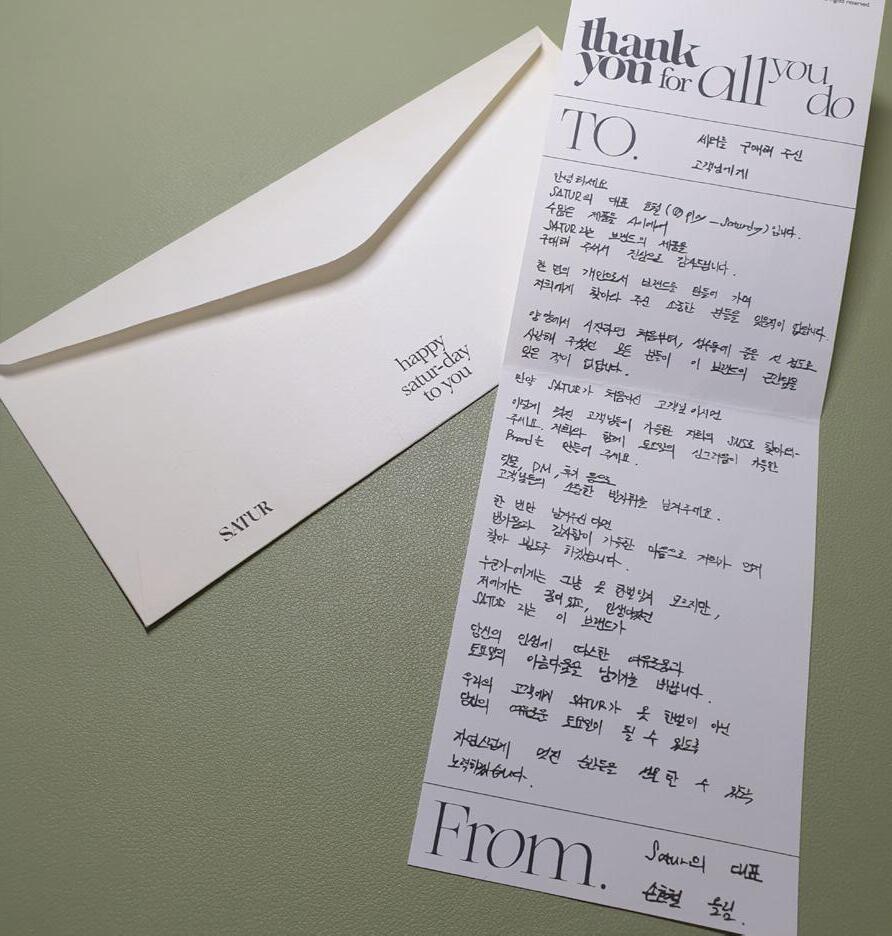 rights reserved.
thank
you for all you
do
TO.
세터를 구매해 주신
고객님에게
안녕하세요
SATUR의 대표 입니다.
수많은 제품들 사이에서
SATUR라는 브랜드의 제품을
구매해 주셔서 진심으로 감사드립니다.
한 명의 개인으로서 브랜드를 만들어 가며
저희에게 찾아와 주신 소중한 분들을 잊은적이 없답니다.
시작하던 처음부터, 성수동에 줄을 선 정도로
사랑해 주셨던 모든 분들이 이 브랜드의 근간임을
잊은 적이 없답니다.
만약 SATUR가 처음이신 고객님이시면
이렇게 멋진 고객님들이 가득한 저희의 SNS로 찾아와
주세요. 저희와 함께 토요일의 싱그러움이 가득한
Brand는 만들어 주세요.
댓글, DM, 후기 등으로
고객님들의 소중한 발자취를 남겨주세요.
한 번만 남겨주신 다면
반가움과 감사함이 가득한 마음으로 저희가 먼저
찾아 뵙도록 하겠습니다.
누군가에게는 그냥 옷 한벌일지 모르지만,
저에게는 꿈이었고, 인생이었던
SATUR 라는 이 브랜드가
당신의 인생에 따스한 여유로움과
토요일의 아름다움을 남기기를 바랍니다.
우리의 고객에게 SATUR가 옷 한벌이 아닌
당신의 여유로운 토요일이 될 수 있도록
자연스럽게 멋진 순간들을 선물 할 수 있도록
노력하겠습니다.
From.
Satur의 대표
손호철 올림.
happy
satur-day
to you
SATUR